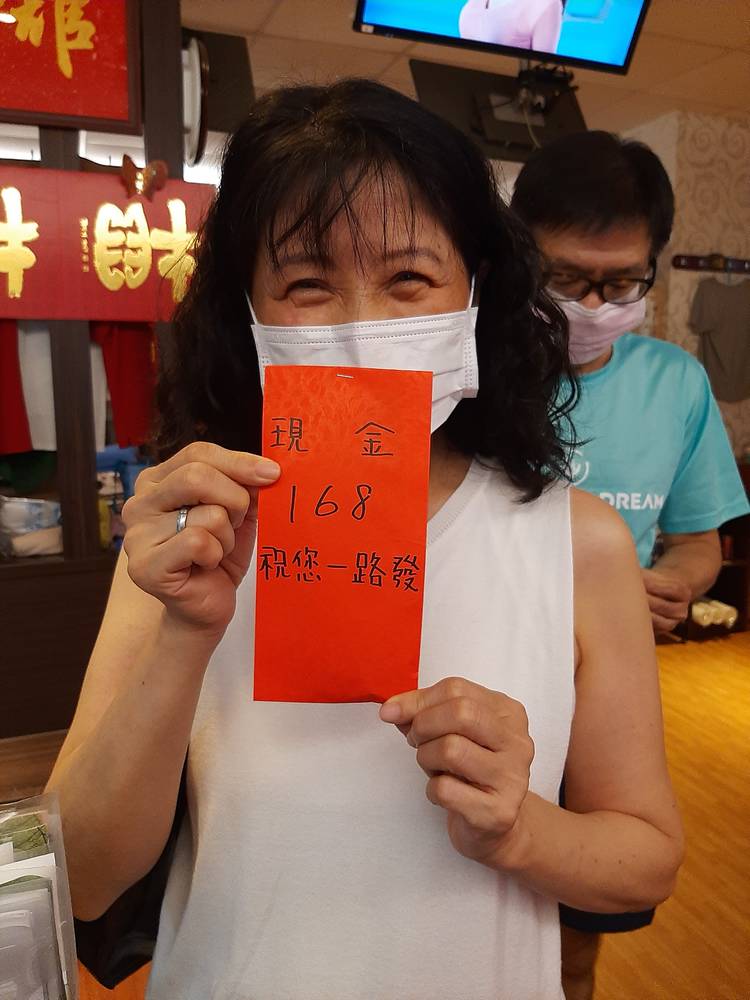 館
財
現 金
168
祝您一路發
DREAM